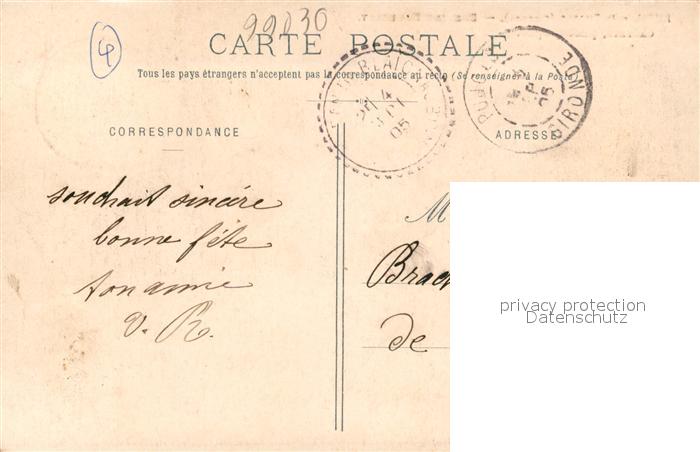 99030
4
CARTE POSTALE
Tous les pays étrangers n'acceptent pas la correspondance au recto (Se renseigner à la Poste)
CORRESPONDANCE
ADRESSE
GIRONDE
05
05
souhait sincère
bonne fête
ton amie
V. R.
M
de
privacy protection
Datenschutz